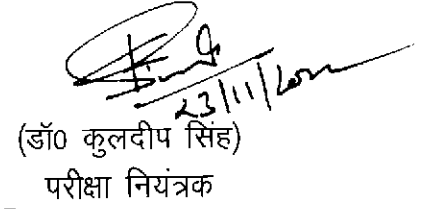 23/11/2022
(डॉ0 कुलदीप सिंह)
परीक्षा नियंत्रक